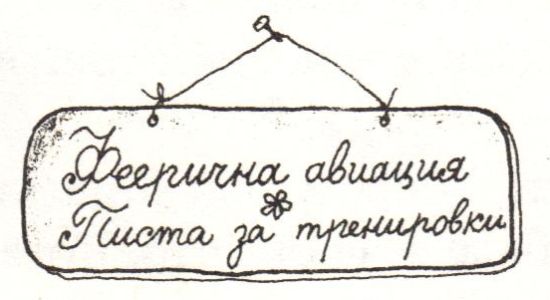 Феерична авиация
Писта за тренировки